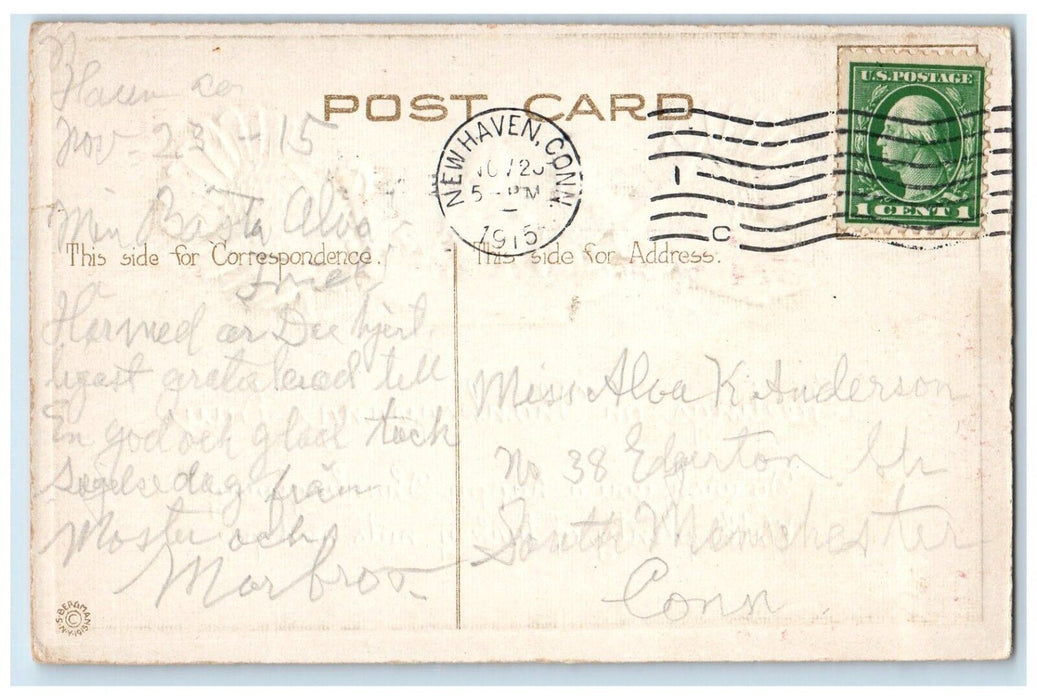 POST CARD
U.S. POSTAGE
1 CENT 1
NEW HAVEN, CONN.
5 - PM
1915
C
Nov - 23 - 15
Min Bästa Alva
This side for Correspondence.
This side for Address.
Härmed är Dee hjert
ligast gratulerad till
En god och glad tack
sägelsedag från
Moster och
Morbror
Miss Alva K Anderson
No 38 Edgerton Str
South Manchester
Conn
S. BERGMAN
© N.Y. 1913